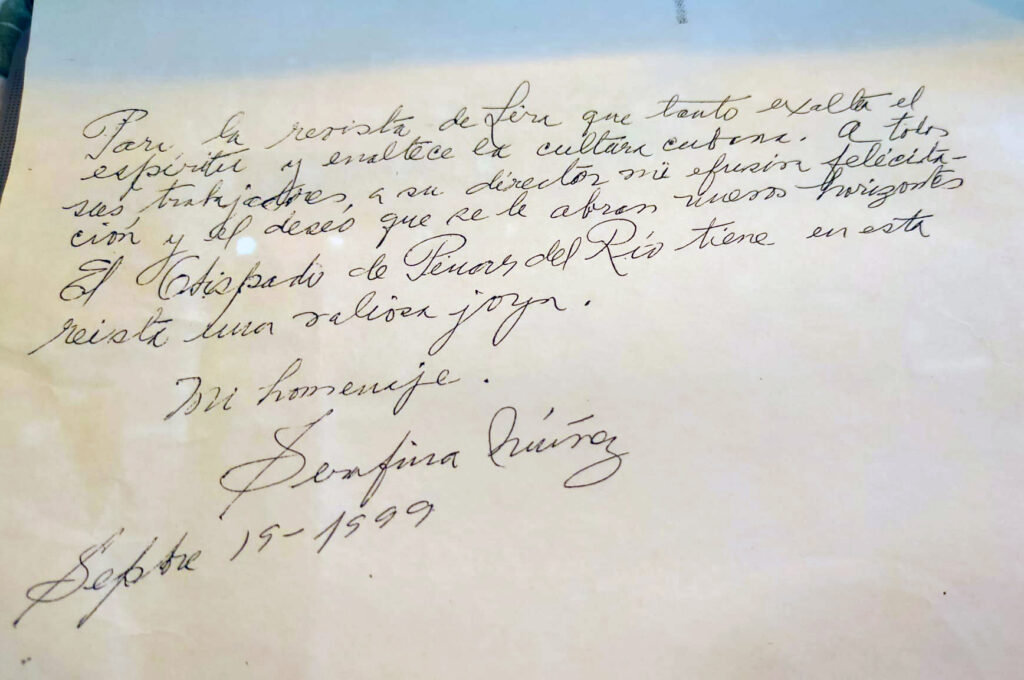 Para la revista de Lira que tanto exalta el
espíritu y enaltece la cultura cubana. A todos
sus trabajadores, a su director mi efusiva felicita-
ción y el deseo que se le abran nuevos horizontes
El Obispado de Pinar del Río tiene en esta
reista una valiosa joya.
Mi homenaje.
Serafina Núñez
Sepbre 19-1999